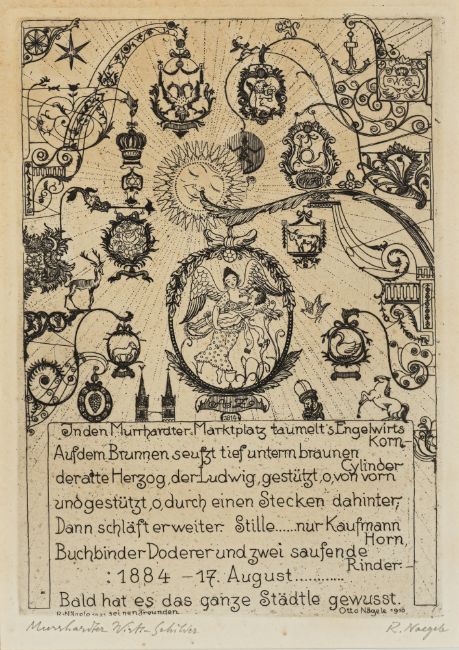 1814
In den Murrhardter Marktplatz taumelt's Engelwirts
Korn.
Auf dem Brunnen seufzt tief unterm braunen
Cylinder
der alte Herzog, der Ludwig, gestützt, o, von vorn
und gestützt, o, durch einen Stecken dahinter,
Dann schläft er weiter. Stille.....nur Kaufmann
Horn,
Buchbinder Doderer und zwei saufende
Rinder:-
:1884 - 17. August............
Bald hat es das ganze Städtle gewusst.
R. Nägele seinen Freunden Otto Nägele 1916
Murrhardter Wirts-Schilder R. Naegele